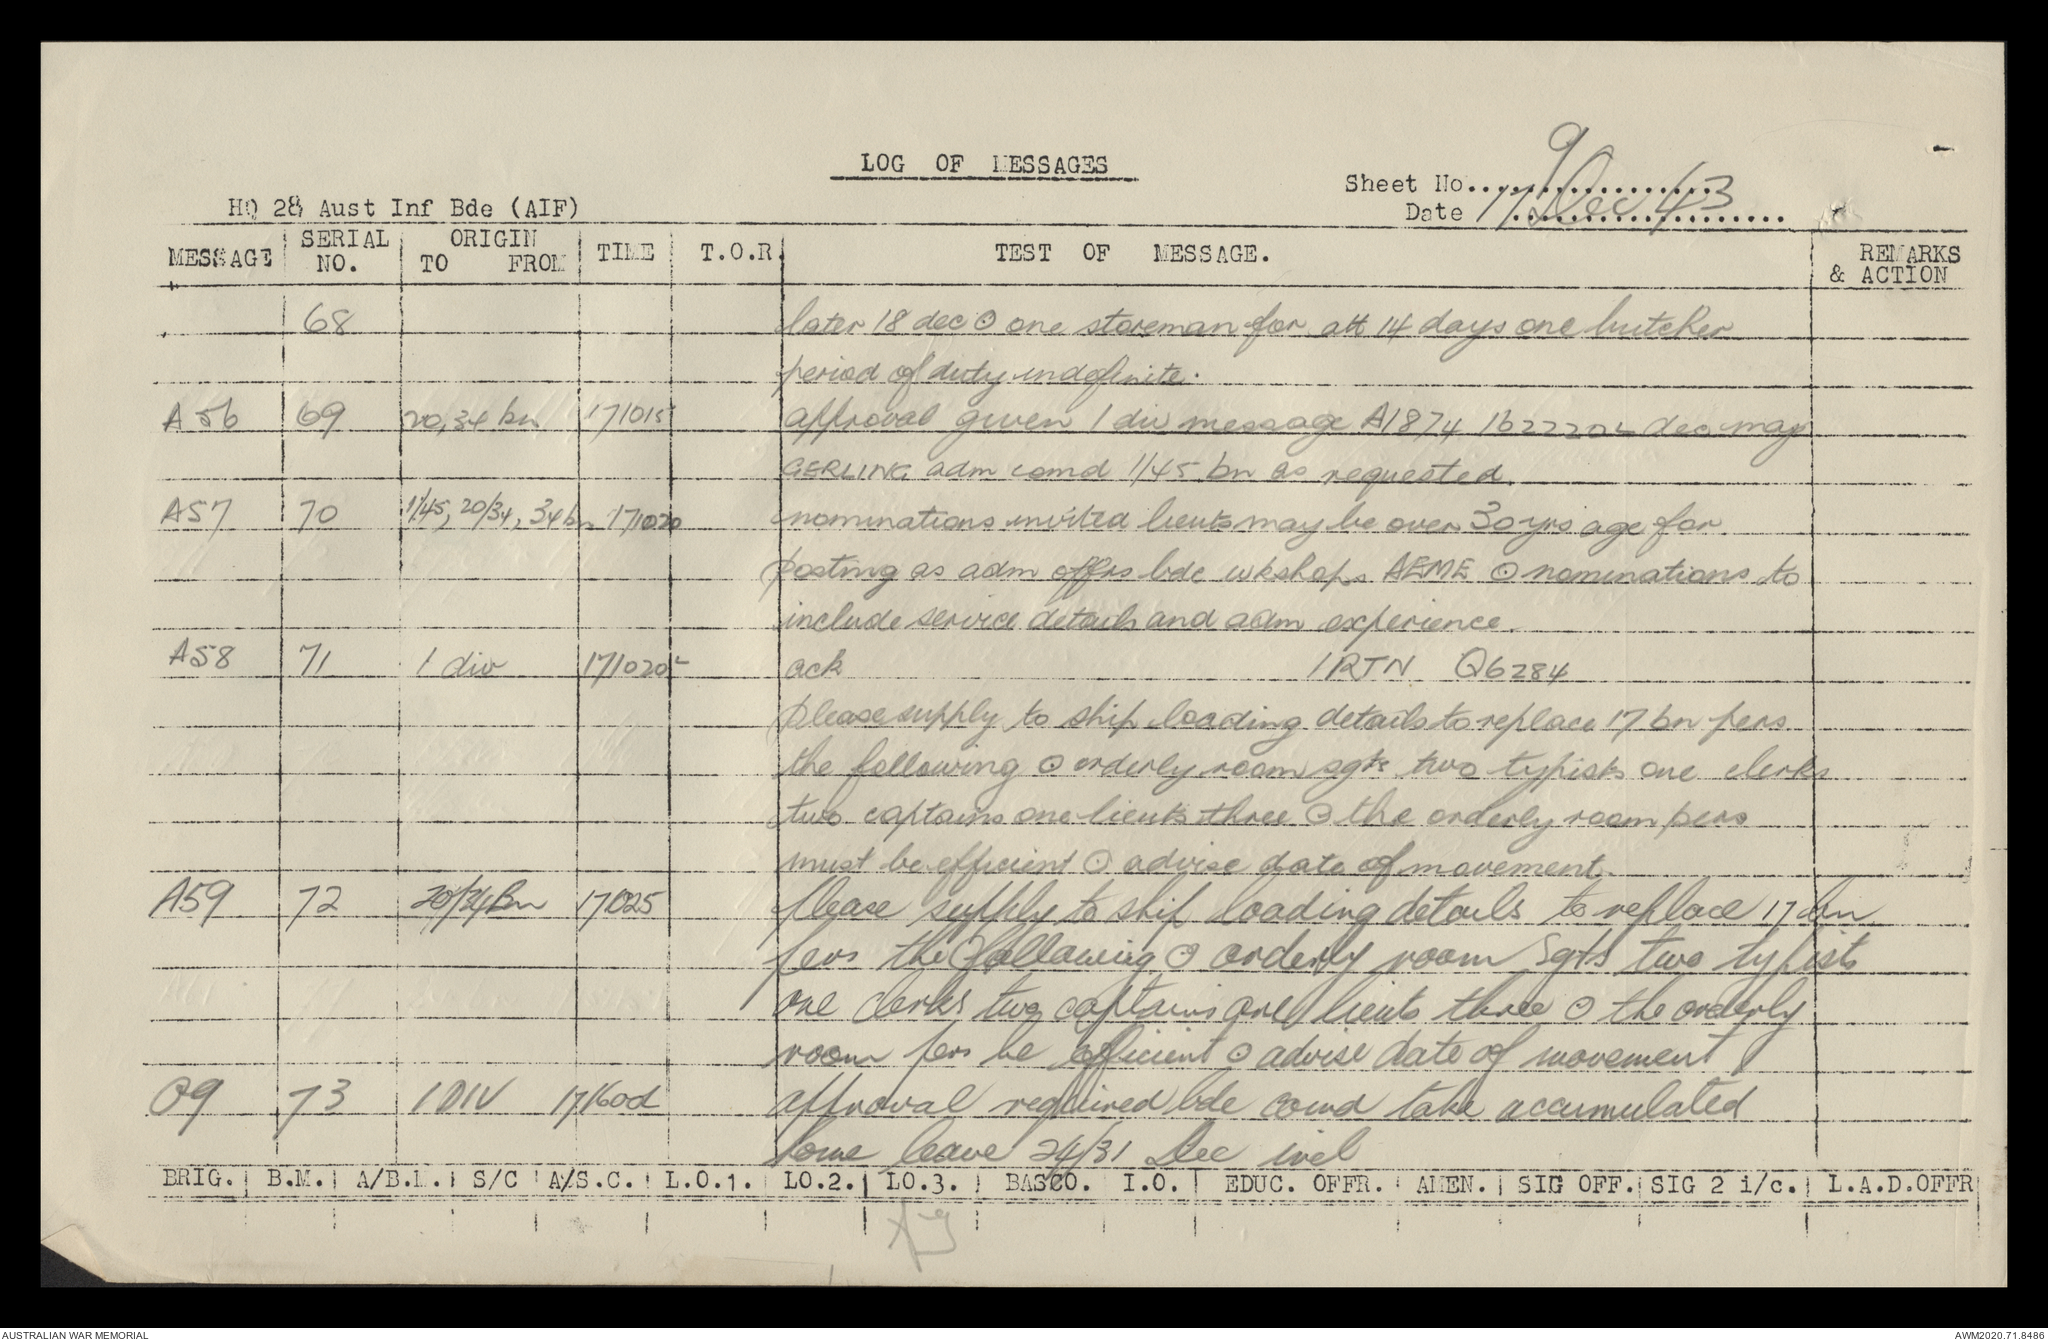 LOG OF MESSAGES
Sheet No. 9
HQ 28 Aust Inf Bde (AIF)
Date 17 Dec 43
MESSAGE SERIAL NO. ORIGIN TO FROM TIME T.O.R. TEST OF MESSAGE. REMARKS & ACTION
68 later 18 dec ⊙ one storeman for att 14 days one butcher
period of duty indefinite.
A56 69 20,34 bn 171015 approval given 1 div message A1874 162220L dec maj
GERLING adm comd 1/45 bn as requested.
A57 70 1/45, 20/34, 34 bn 171020 nominations invited lieuts may be over 30 yrs age for
posting as adm offrs bde wkshops AEME ⊙ nominations to
include service details and adm experience.
A58 71 1 div 171020L ack 1RTN Q6284
please supply to ship loading details to replace 17 bn pers
the following ⊙ orderly room sgts two typists one clerks
two captains one lieuts three ⊙ the orderly room pers
must be efficient ⊙ advise date of movement.
A59 72 20/34 Bn 171025 please supply to ship loading details to replace 17 bn
pers the following ⊙ orderly room Sgts two typists
one clerks two captains one lieuts three ⊙ the orderly
room pers be efficient ⊙ advise date of movement
O9 73 1 DIV 171600L approval required bde comd take accumulated
home leave 24/31 Dec incl
BRIG. B.M. A/B.M. S/C A/S.C. L.O.1. LO.2. LO.3. BASCO. I.O. EDUC. OFFR. AMEN. SIG OFF. SIG 2 i/c. L.A.D.OFFR
AUSTRALIAN WAR MEMORIAL
AWM2020.71.8486